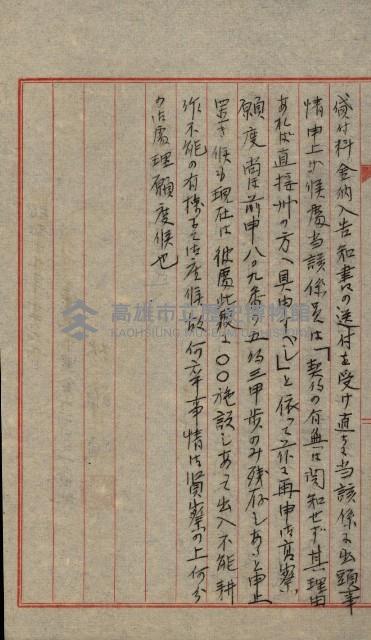 貸付料金納入告知書の送付を受け直ちに当該係に出頭事
情申上げ候處当該係員は「契約の有無は関知せず其理由
あれば直接州の方へ具申すべし」と依って茲に再申御高察
願度尚ほ前申八〇九番の五約三甲歩のみ残存しあると申上
置き候も現在は彼處此處に〇〇施設しあって出入不能耕
作不能の有様にて御座候故何卒事情御賢察の上何分
の御處理願度候也
高雄市立歷史博物館
KAOHSIUNG MUSEUM OF HISTORY